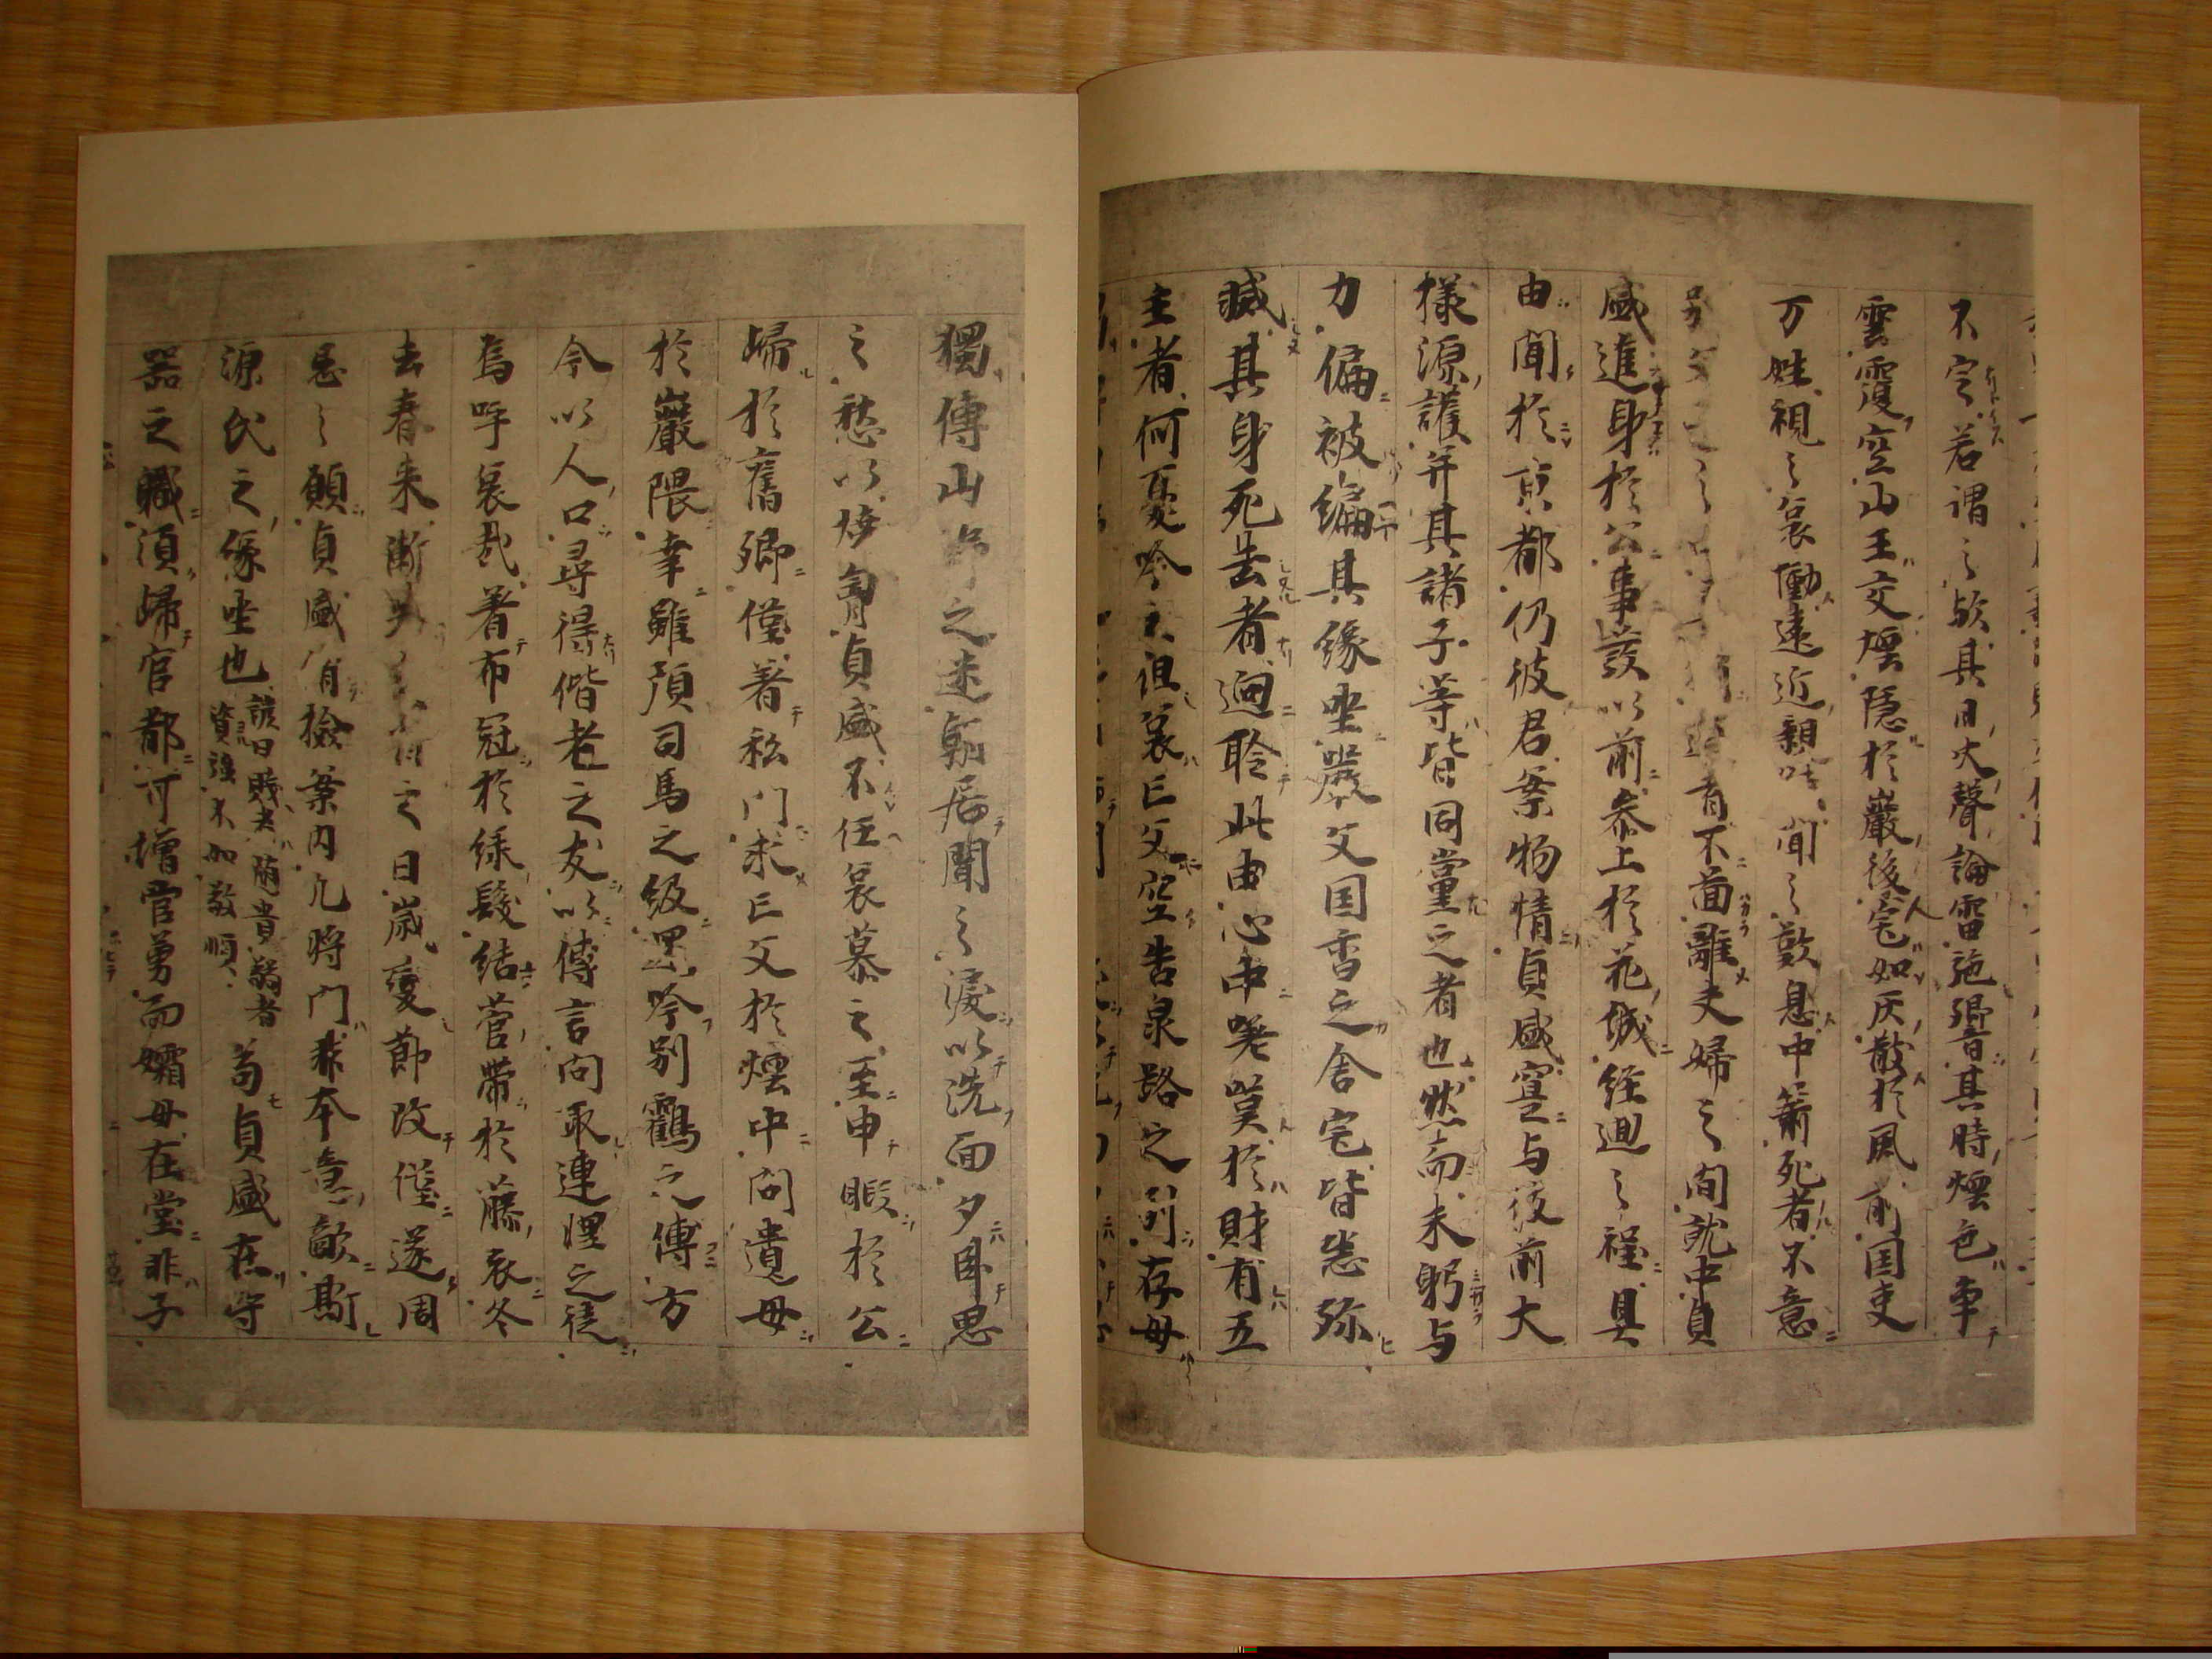 不定若謂之於其日火聲論雷施響其時煙色争
雲覆空山王交煙隠於巖後人宅如灰散於風前国吏
万姓視之哀慟遠近親 聞之歎息中箭死者不意
別父子之 不面離夫婦之間就中貞
盛進身於公事發以前参上於花城経廻之程具
由聞於京都仍彼君案物情貞盛寔与彼前大
掾源護并其諸子等皆同黨之者也然而未躬与
力偏被編其縁坐嚴父国香之舎宅皆悉殄
滅其身死去者遐聆此由心中嗟嘆於財有五
主者何憂吟之但哀亡父空告泉路之別存母
獨傳山 之迷朝居聞之涙以洗面夕臥思
之愁以焼胷貞盛不任哀慕之至申暇於公
歸於舊郷僅著私門求亡父於煙中問遺母
於巖隈幸雖預司馬之級還吟別鶴之傳方
今以人口尋得偕老之友以傳言問取連理之徒
烏呼哀哉著布冠於緑髪結菅帶於藤衣冬
去春来漸失 之日歳變節改僅遂周
忌之願貞盛倩檢案内凡将門非本意敵斯
源氏之縁坐也 諺曰賤者随貴弱者資強不如敬順 苟貞盛在守
器之職須歸官都可増官勇而孀母在堂非子